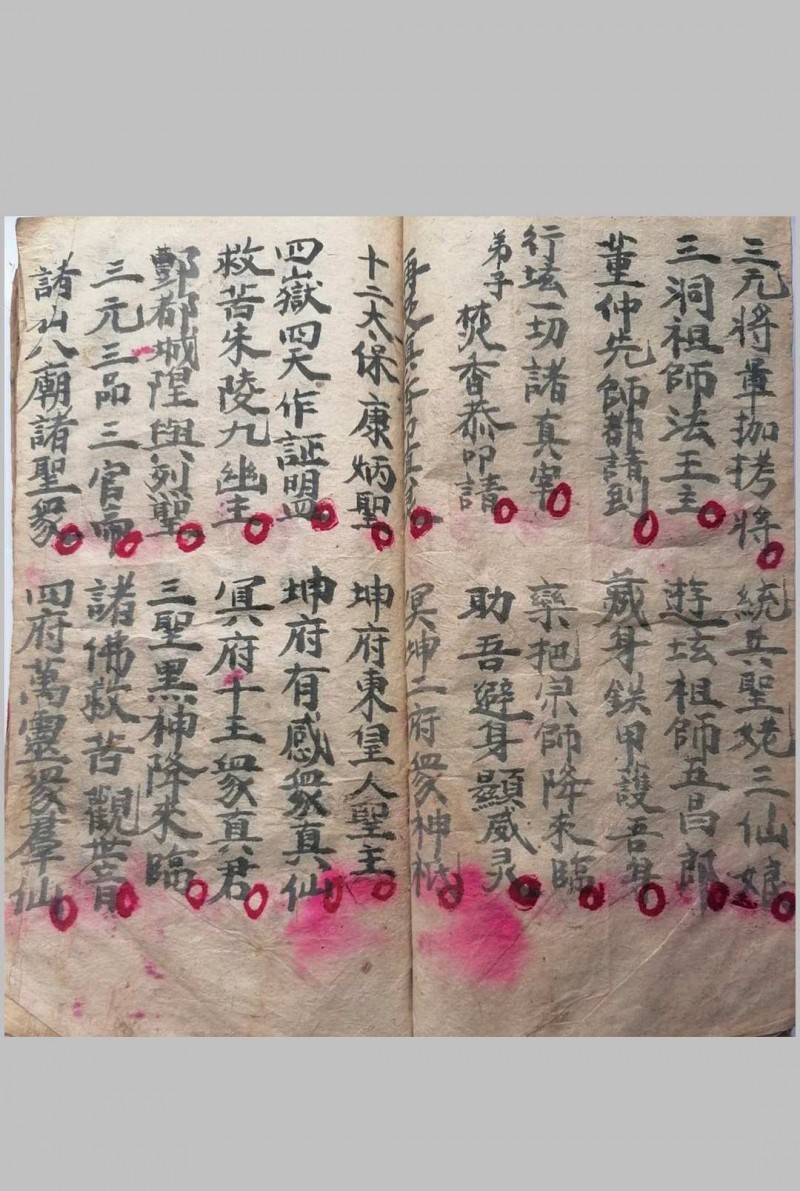 三元將軍拁拷將 統兵聖姥三仙娘
三洞祖師法王主 遊坛祖師五昌郎
董仲先師都請到 藏身鉄甲護吾身
行坛一切諸真宰 欒把宗師降來臨
弟子焚香恭叩請 助吾避身顯威灵
冥坤二府衆神祇
十二太保康炳聖 坤府東皇大聖主
四嶽四天作証盟 坤府有感衆真仙
救苦朱陵九幽主 冥府十王衆真君
酆都城隍與列聖 三聖黑神降來臨
三元三品三官帝 諸佛救苦觀世音
諸山八廟諸聖衆 四府萬靈衆羣仙